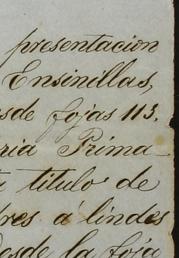 presentacion
Ensinillas,
sde fojas 113.
ria Prima
titulo de
res á lindes
desde la foja